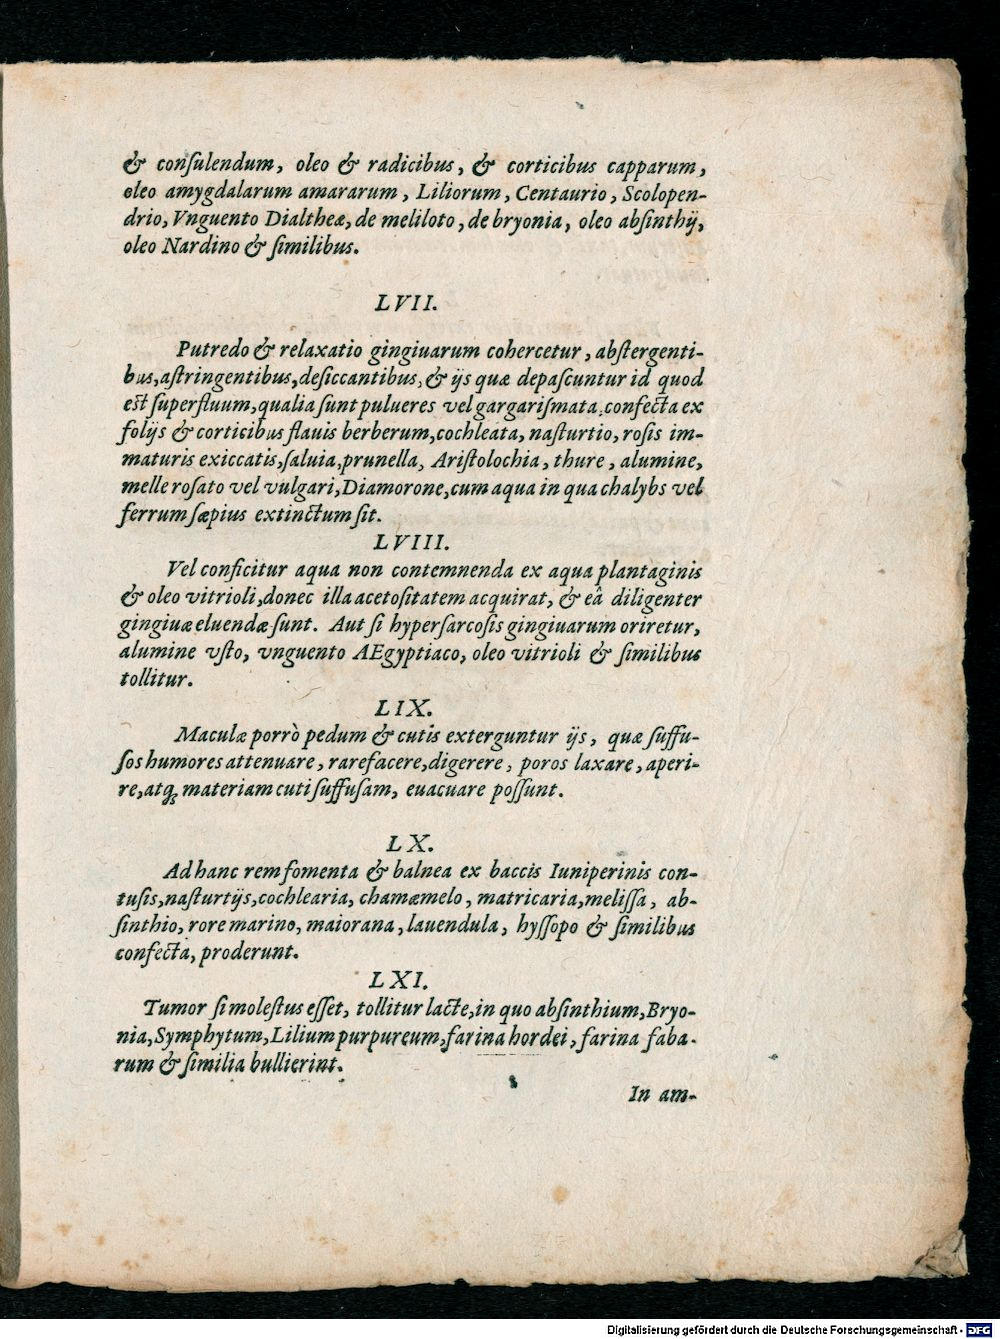 & conſulendum, oleo & radicibus, & corticibus capparum,
oleo amygdalarum amararum, Liliorum, Centaurio, Scolopen-
drio, Vnguento Dialtheæ, de meliloto, de bryonia, oleo abſinthij,
oleo Nardino & ſimilibus.
LVII.
Putredo & relaxatio gingiuarum cohercetur, abſtergenti-
bus, aſtringentibus, deſiccantibus, & ijs quæ depaſcuntur id quod
eſt ſuperfluum, qualia ſunt pulueres vel gargariſmata confecta ex
folijs & corticibus flauis berberum, cochleata, naſturtio, roſis im-
maturis exiccatis, ſaluia, prunella, Ariſtolochia, thure, alumine,
melle roſato vel vulgari, Diamorone, cum aqua in qua chalybs vel
ferrum ſæpius extinctum ſit.
LVIII.
Vel conficitur aqua non contemnenda ex aqua plantaginis
& oleo vitrioli, donec illa acetoſitatem acquirat, & eâ diligenter
gingiuæ eluendæ ſunt. Aut ſi hyperſarcoſis gingiuarum oriretur,
alumine vſto, vnguento AEgyptiaco, oleo vitrioli & ſimilibus
tollitur.
LIX.
Maculæ porrò pedum & cutis exterguntur ijs, quæ ſuffu-
ſos humores attenuare, rarefacere, digerere, poros laxare, aperi-
re, atq; materiam cuti ſuffuſam, euacuare poſſunt.
LX.
Ad hanc rem fomenta & balnea ex baccis Iuniperinis con-
tuſis, naſturtijs, cochlearia, chamæmelo, matricaria, meliſſa, ab-
ſinthio, rore marino, maiorana, lauendula, hyſſopo & ſimilibus
confecta, proderunt.
LXI.
Tumor ſi moleſtus eſſet, tollitur lacte, in quo abſinthium, Bryo-
nia, Symphytum, Lilium purpureum, farina hordei, farina faba-
rum & ſimilia bullierint.
In am-
Digitalisierung gefördert durch die Deutsche Forschungsgemeinschaft - DFG